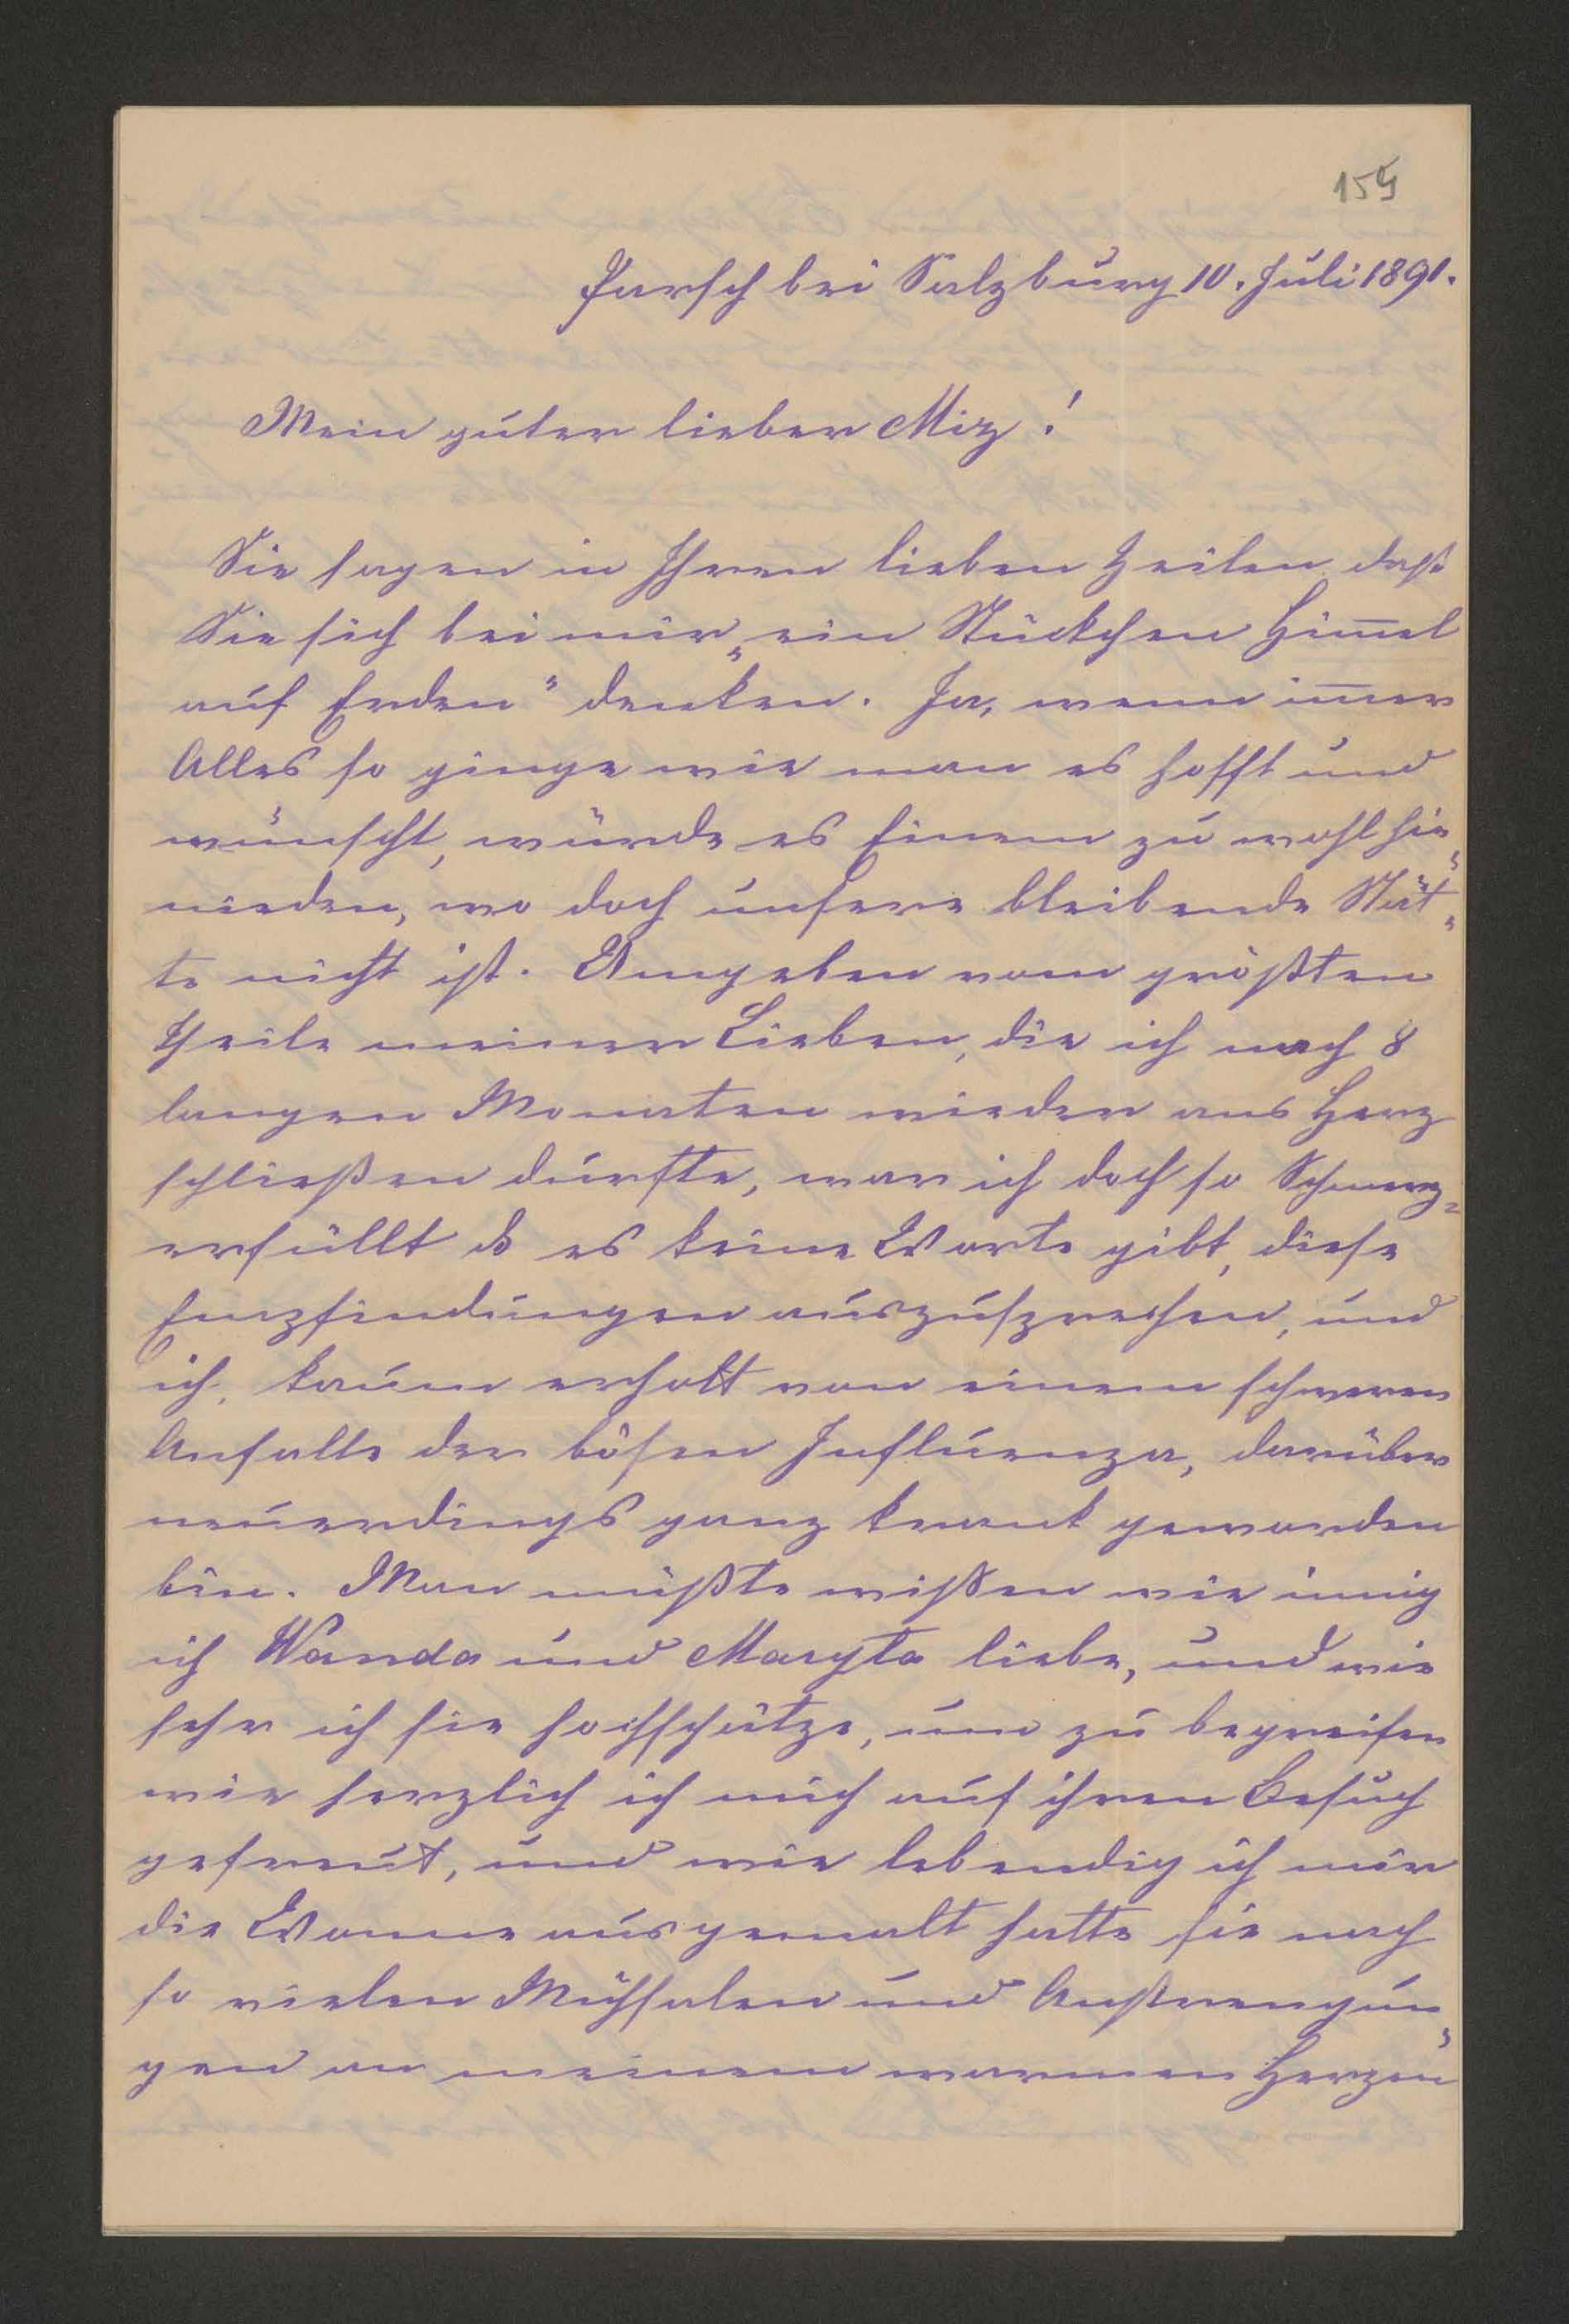 159
Parsch bei Salzburg 10. Juli 1891.
Mein guter lieber Miz!
Sie sagen in Ihren lieben Zeilen daß
Sie sich bei mir „ein Stückchen Him̅el
auf Erden“ denken. Ja, wenn im̅er
Alles so ginge wie man es hofft und
wünscht, würde es Einem zu wohl hie„
nieden, wo doch unsere bleibende Stät„
te nicht ist. Umgeben vom größten
Theile meiner Lieben, die ich nach 8
langen Monaten wieder ans Herz
schließen durfte, war ich doch so Schmerz=
erfüllt daß es keine Worte gibt, diese
Empfindungen auszusprechen, und
ich, kaum erholt von einem schweren
Anfalle der bösen Influenza, darüber
neuerdings ganz krank geworden
bin. Man müßte wißen wie innig
ich Wanda und Maryla liebe, und wie
sehr ich sie hochschätze, um zu begreifen
wie herzlich ich mich auf ihren Besuch
gefreut, und wie lebendig ich mir
die Wonne ausgemalt hatte sie nach
so vielen Mühsalen und Anstrengun„
gen an meinem warmen Herzen